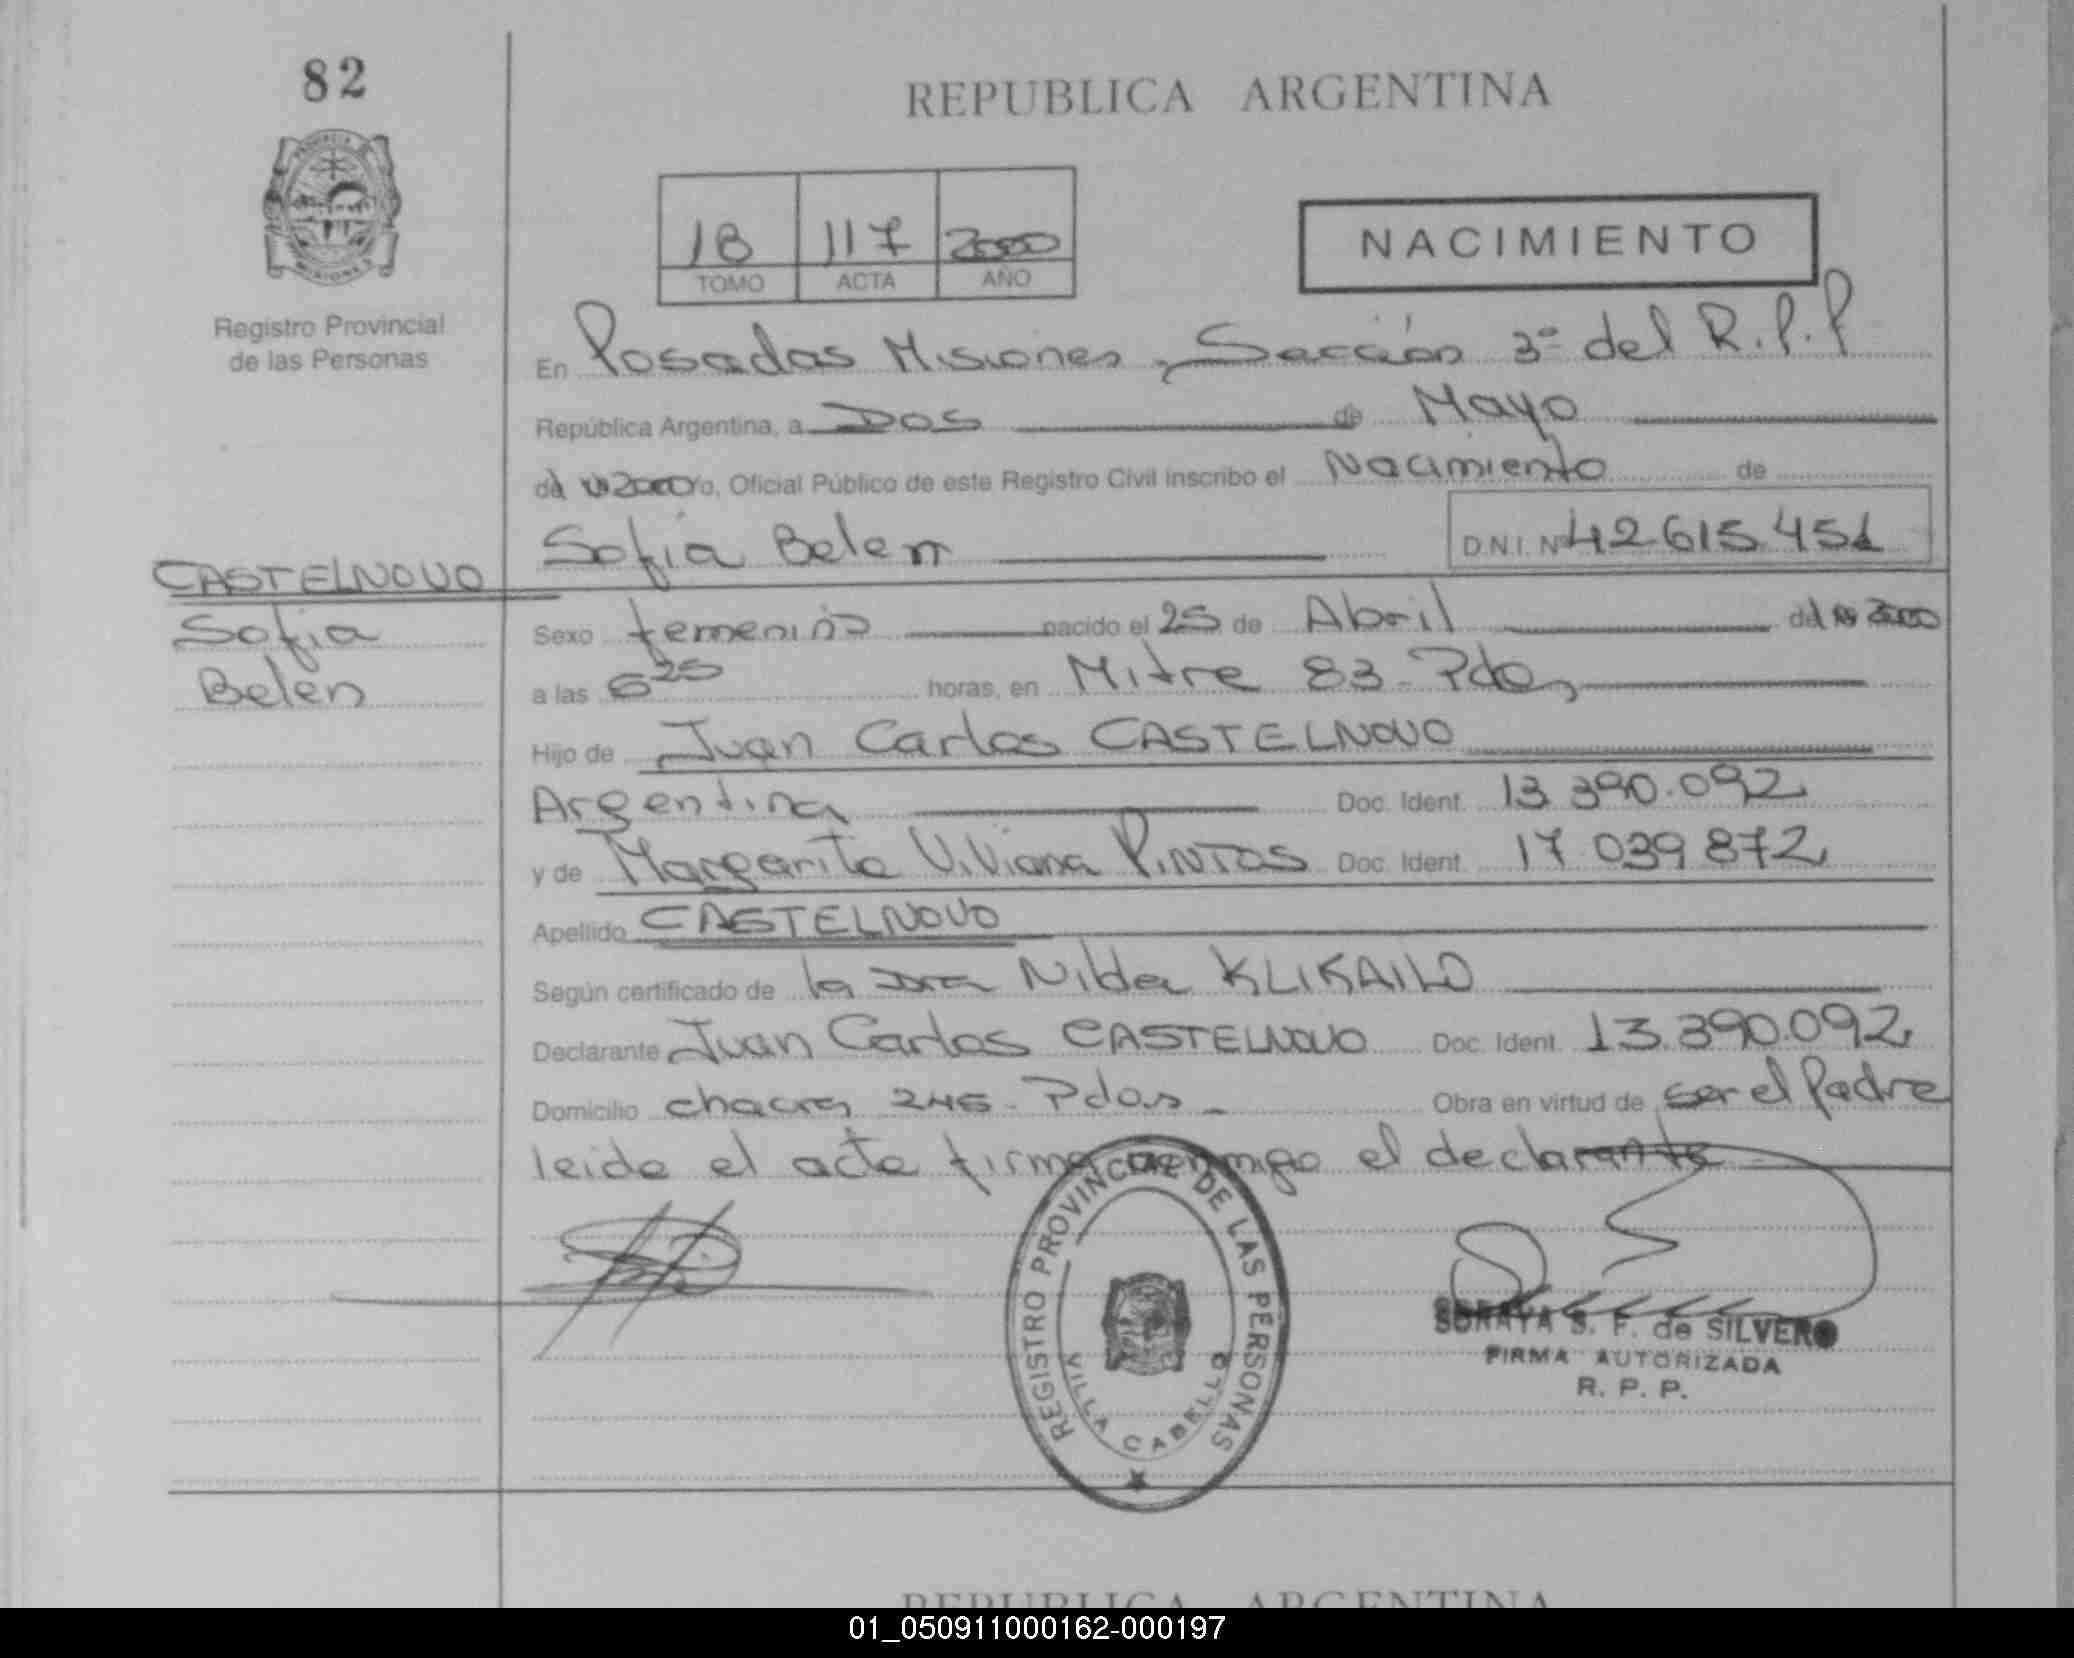 82
REPUBLICA ARGENTINA
18 117 2000
TOMO ACTA AÑO
NACIMIENTO
Registro Provincial
de las Personas
En Posadas Misiones, Sección 3º del R.P.P
República Argentina, a Dos de Mayo
del 2000 yo, Oficial Público de este Registro Civil inscribo el Nacimiento de
Sofia Belen D.N.I. Nº 42615451
CASTELNOVO
Sofia
Belen
Sexo femenino nacido el 25 de Abril del 2000
a las 6 25 horas, en Mitre 83 - Pdas,
Hijo de Juan Carlos CASTELNOVO
Argentina Doc. Ident. 13.390.092
y de Margarita Viviana PINTOS Doc. Ident. 17.039.872
Apellido CASTELNOVO
Según certificado de la Dra Nilda KLIKAILO
Declarante Juan Carlos CASTELNOVO Doc. Ident. 13.390.092
Domicilio chacra 246 - Pdas - Obra en virtud de ser el Padre
leida el acta firma conmigo el declarante
REGISTRO PROVINCIAL DE LAS PERSONAS
VILLA CABELLO
SORAYA S. F. de SILVERO
FIRMA AUTORIZADA
R. P. P.
REPUBLICA ARGENTINA
01_050911000162-000197